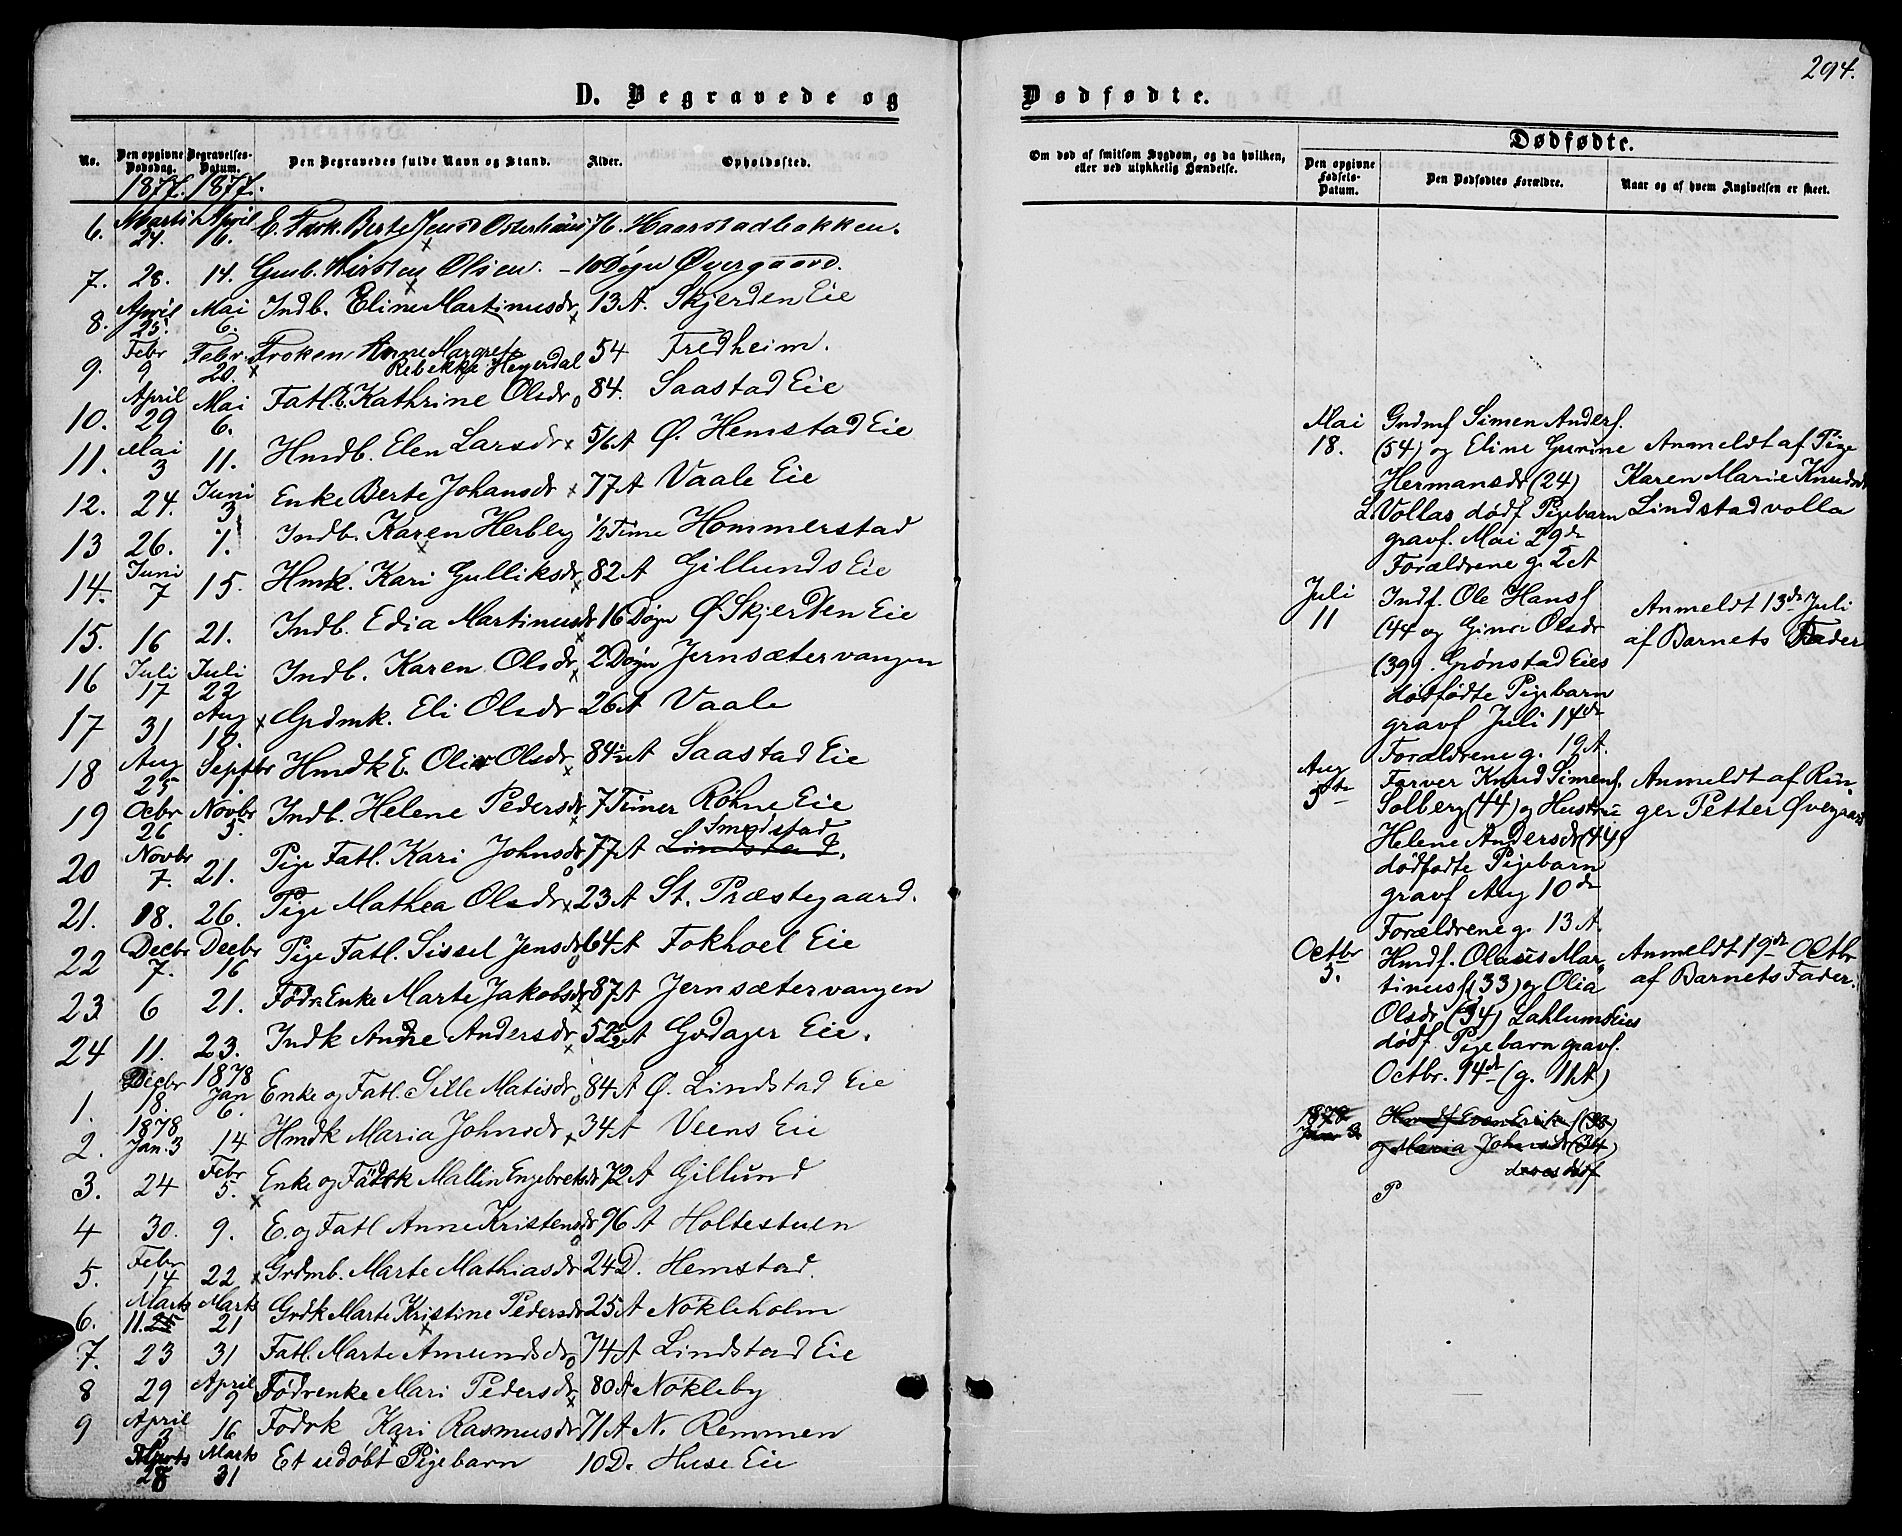 294.
D. Begravede og
Dødfødte.
No. Den opgivne Dødsdag. Begravelses-Datum. Den Begravedes fulde Navn og Stand. Alder. Opholdssted.
1877. 1877.
6. Marts 24. April 16. E. Berte 76. Haarstadbakken.
7. 28. 14. Kirsten Olsen. 10 Døgn Øvergaard.
8. April 25. Mai 6. Indb. Eline Martinusdr 13 A. Skjerden Eie
9. Febr 9 Febr 20. Frøken Anne Margrete Rebekke Heyerdal 54 Fredheim.
10. April 29 Mai 6. Fatl. E. Kathrine Olsdr 84. Saastad Eie
11. Mai 3 11. Hmdb. Elen Larsdr 5/6 A Ø. Hemstad Eie
12. 24. Juni 3 Enke Berte Johansdr 77 A Vaale Eie
13 26. 1. Indb. Karen Herbey ½ Time Hommerstad
14. Juni 7 15. Hmk. Kari Gulliksdr 82 A Gillunds Eie
15. 16 21. Indb. Edia Martinusdr 16 Døgn Ø. Skjerden Eie
16 Juli 17 Juli 22 Indb. Karen Olsdr 2 Døgn Jernsætervangen
17 31 Aug 10. Grdmk. Eli Olsdr 26 A Vaale
18 Aug 25 Septbr 1. Hmdk E. Olsdr 84 A Saastad Eie
19 Octbr 26 Novbr 5. Indb. Helene Pedersdr 7 Timer Røhne Eie
20 Novbr 7. 21. Pige Fatl. Kari Johnsdr 77 A Smedstad Lindstad.
21. 18. 26. Pige Mathea Olsdr 23 A St. Præstegaard.
22 Decbr 7. Decbr 16 Pige Fatl. Sissel Jensdr 64 A Fokhoel Eie
23 6 21. Födr. Enke Marte Jakobsdr 87 A Jernsætervangen
24 11. 23. Indk Andersdr 52 A Godager Eie.
1. Decbr 18. 1878 Jan 6. Enke og Fatl. Sille Matisdr 84 A Ø. Lindstad Eie
2. 1878 Jan. 3 14 Hmdk Maria Johnsdr 34 A Veens Eie
3. 24 Febr 5. Enke og Födrk Mallin Engebretsdr 72 A Gillund
4 30. 9. E. og Fatl Anne Kristensdr 96 A Holtestuen
5. Febr 14 22 Grdmb. Marte Mathiasdr 24 D. Hemstad.
6. Marts 11. 25 Marts 21 Grdk Marte Kristine Pedersdr 25 A Nokleholm
7. 23 31 Fatl. Marte Amundsdr 74 A Lindstad Eie
8 29 April 9 Födrenke Mari Pedersdr 80 A Nokleby
9 April 3 16 Födrk Kari Rasmusdr 71 A N. Remmen
Marts 28 Marts 31 Et udøbt Pigebarn 10 D. Huse Eie
Om død af smitsom Sygdom, og da hvilken, eller ved ulykkelig Hændelse.
Dødfødte.
Den opgivne Fødsels-Datum. Den Dødfødtes Forældre. Naar og af hvem Angivelsen er skeet.
Mai Grdmf Simen Andersf.
18. (54) og Eline Gurine Anmeldt af Pige
Hermansdr (24) Karen Marie Knudsdr
L. Vollas dødf Pigebarn Lindstadvolla
gravf. Mai 29de
Forældrene g. 2 A
Juli Indf. Ole Hansf
11 (44 og Gina Olsdr Anmeldt 13de Juli
(39) Grønstad Eies af Barnets Fader
dødfødte Pigebarn
gravf Juli 14de
Forældrene g. 19 A.
Aug Farver Knud Simensf. Anmeldt af Rin-
5te Solberg (44) og Hustru ger Petter Øvergaard
Helene Andersdr (44)
dødfødte Pigebarn
gravf Aug 10de
Forældrene g. 13 A.
Octbr Hmdf. Olaus Mar- Anmeldt 19de Octbr
5. tinusf (33) og Olia af Barnets Fader.
Olsdr (34) Lahlums Eies
dødf. Pigebarn gravf.
Octbr. 14de (g. 11 A)
1878 Hmdf Even Erikf (38)
Jan 2 og Maria Johnsdr (34)
deres dødf
P